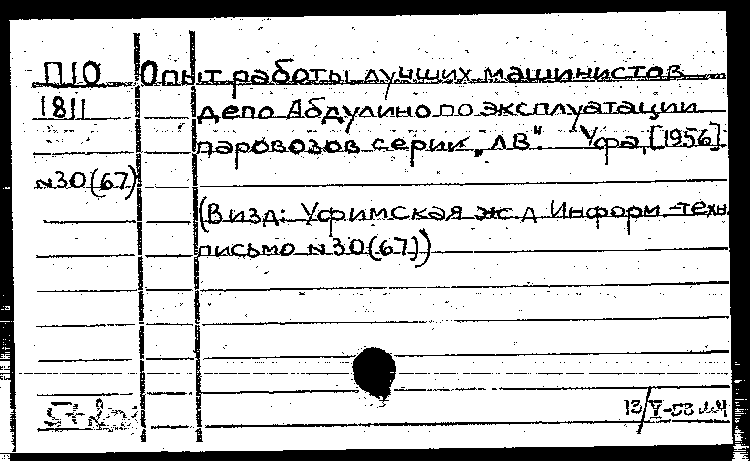 П10 Опыт работы лучших машинистов
1811 депо Абдулино по эксплуатации
паровозов серии „ЛВ". Уфа, [1956].
№30(67)
(В изд: Уфимская ж.д Информ-техн.
письмо №30(67))
13/V-53